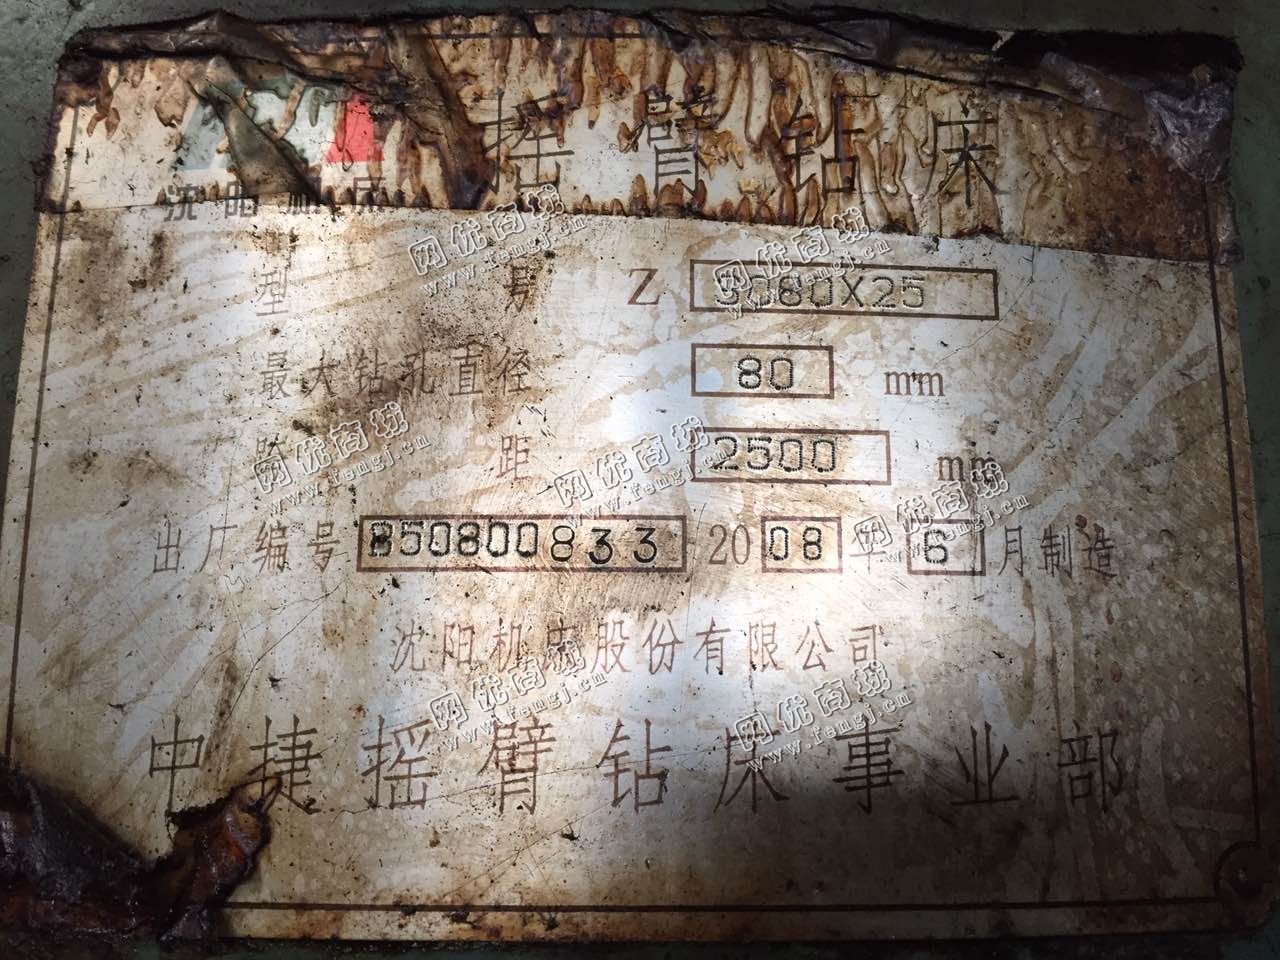 摇臂钻床
沈阳机床
型号 Z 3080X25
最大钻孔直径 80 mm
跨距 2500 mm
出厂编号 B50800833 2008年6月制造
沈阳机床股份有限公司
中捷摇臂钻床事业部
网优商坊
www.fengj.cn
网优商坊
www.fengj.cn
网优商坊
www.fengj.cn
网优商坊
www.fengj.cn
网优商坊
www.fengj.cn
网优商坊
www.fengj.cn
网优商坊
www.fengj.cn